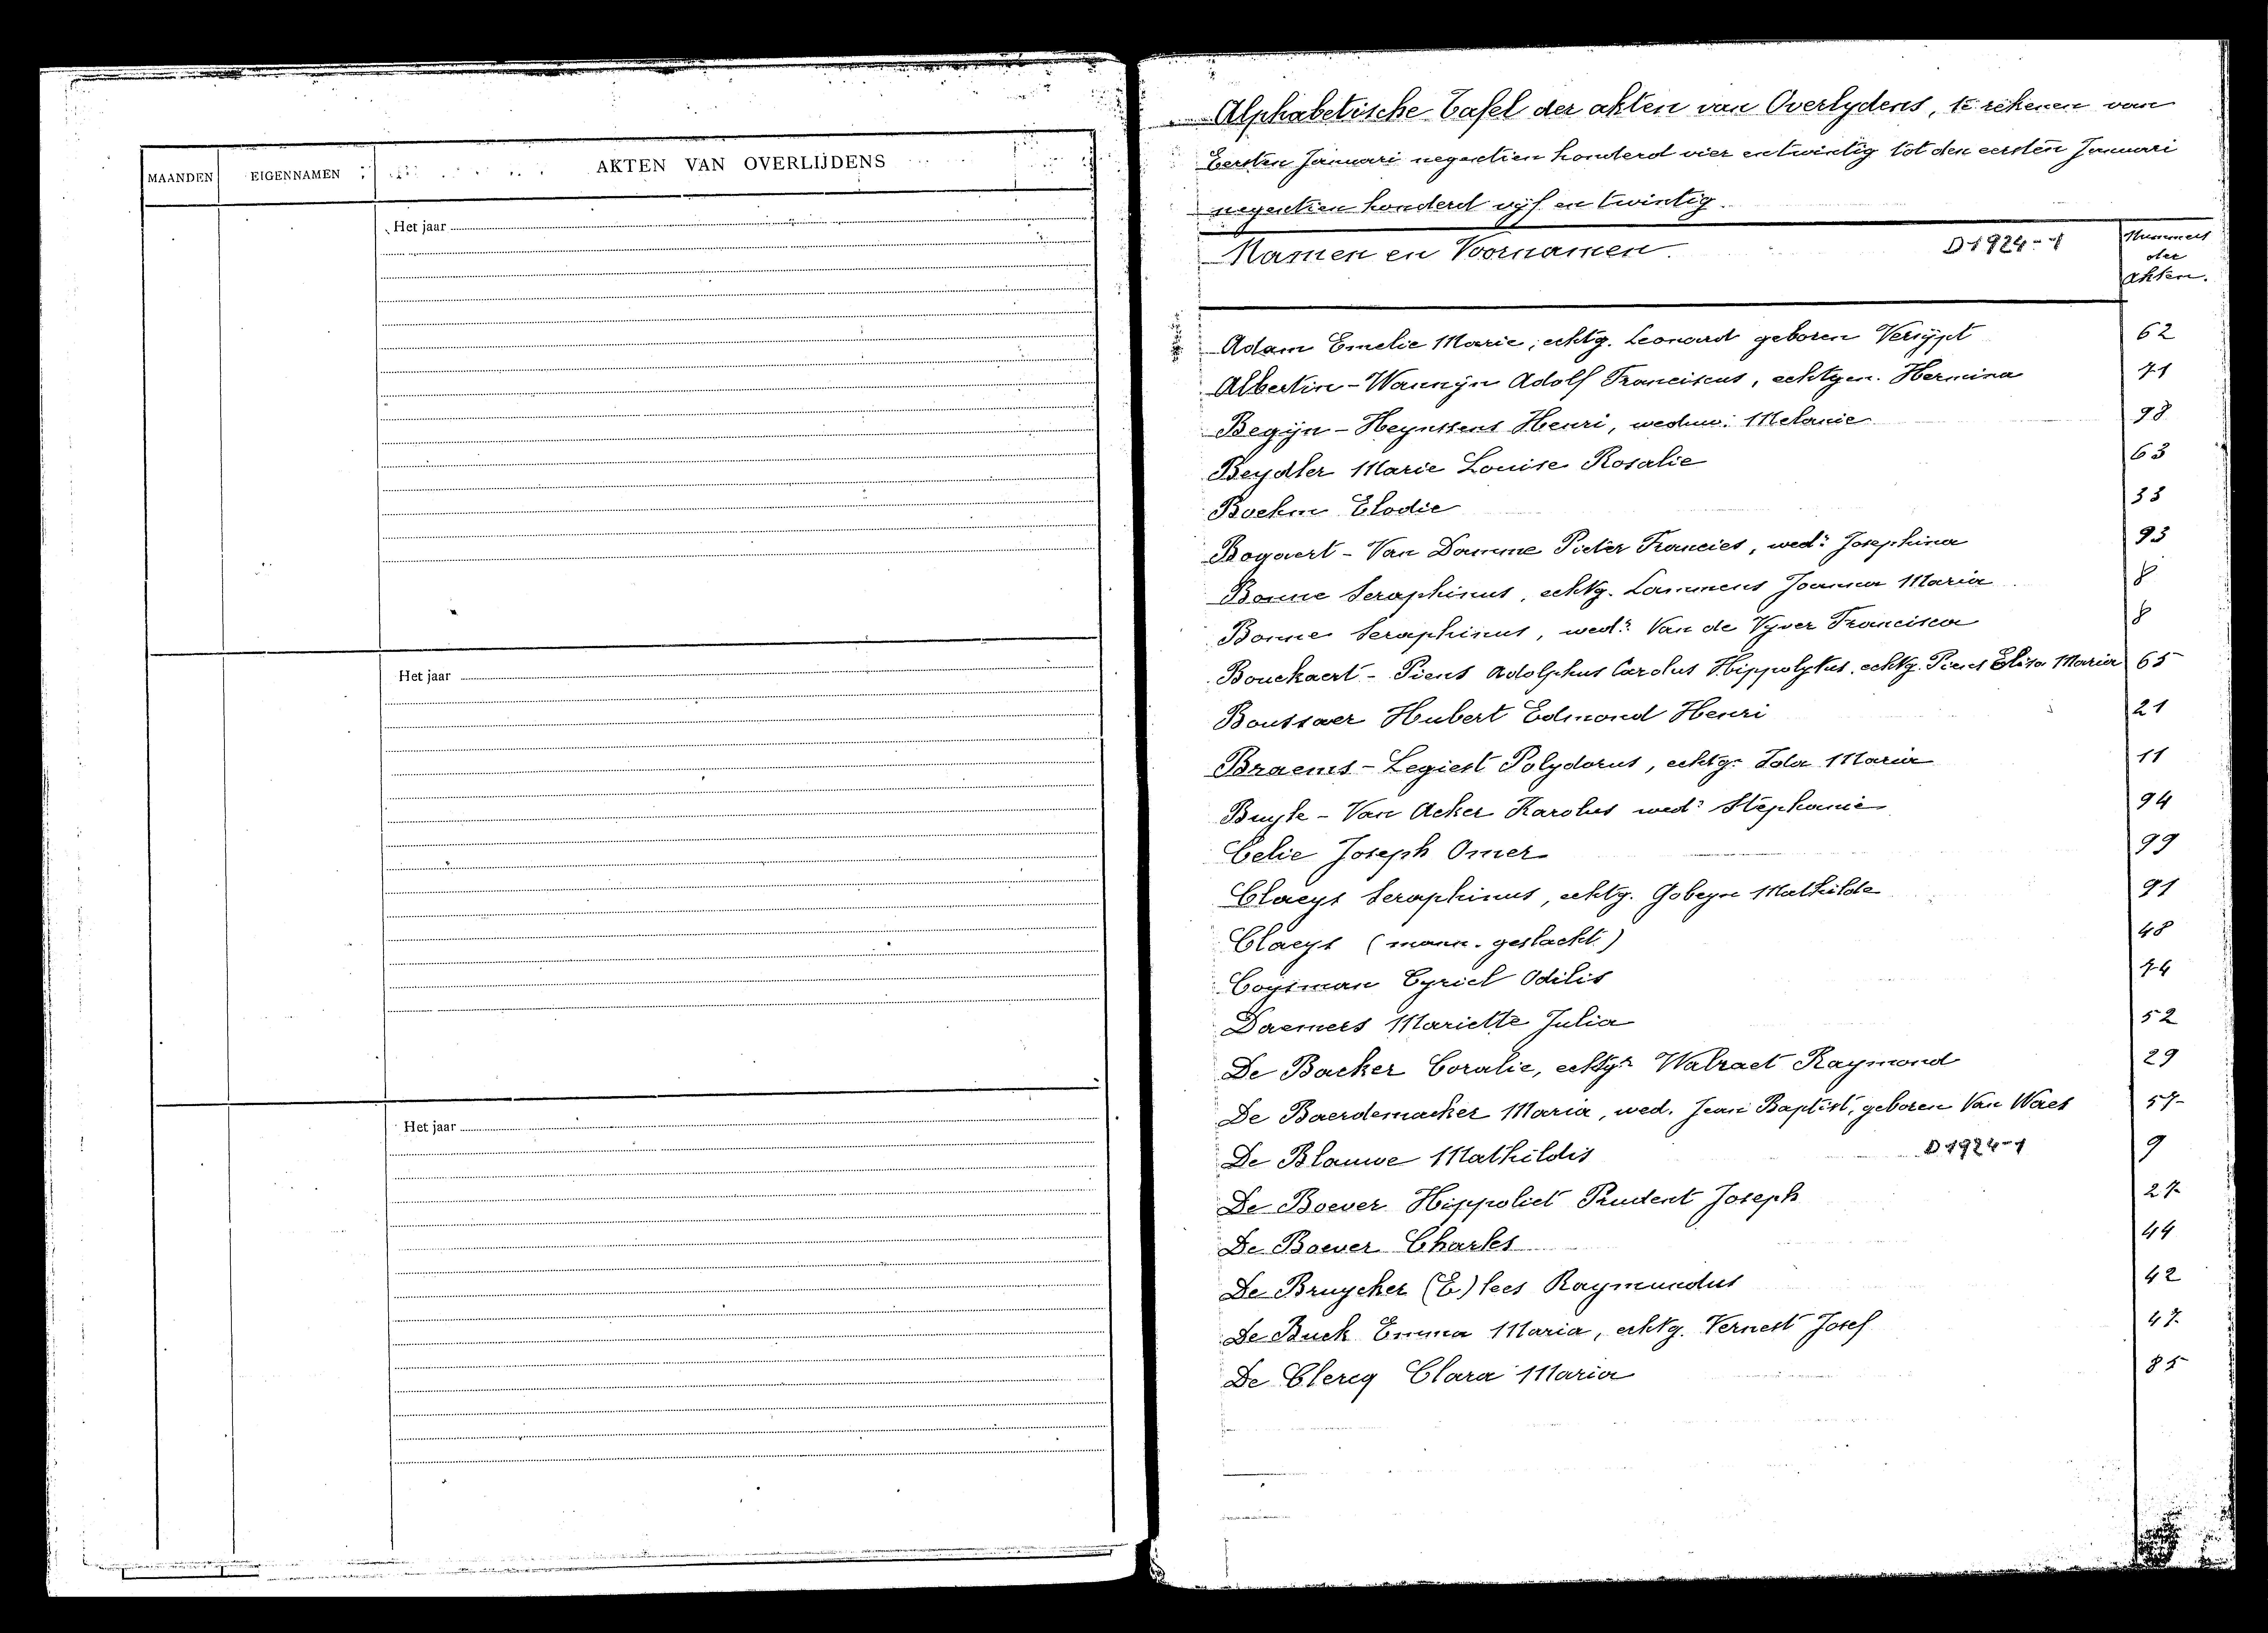 MAANDEN
EIGENNAMEN
AKTEN VAN OVERLIJDENS
Het jaar
Het jaar
Het jaar
Alphabetische Tafel der akten van Overlydens, te rekenen van
Eersten Januari negentien honderd vier en twintig tot den eersten Januari
negentien honderd vijf en twintig.
Namen en Voornamen. D1924-1 Nummers
der
akten.
Adam Emelie Marie, echtg. Leonard geboren Versijpt 62
Albertin - Wannijn Adolf Franciscus, echtgen. Hermina 71
Begijn - Heynssens Henri, weduw. Melanie 98
Beydler Marie Louise Rosalie 63
Boehm Elodie 33
Bogaert - Van Damme Pieter Francies, wed: Josephina 93
Bonne Seraphinus, echtg. Lammens Joanna Maria 8
Bonne Seraphinus, wed: Van de Vyver Francisca 8
Bouckaert - Piens Adolphus Carolus Hippolytus, echtg. Piens Elisa Maria 65
Boussaer Hubert Edmond Henri 21
Braems - Legiest Polydorus, echtg. Ida Maria 11
Buyle - Van Acker Karolus wed: Stephanie 94
Celie Joseph Omer 99
Claeys Seraphinus, echtg. Gobeyn Mathilde 91
Claeys (mann. geslacht) 48
Coysman Cyriel Odilis 74
Daemers Mariette Julia 52
De Backer Coralie, echtg: Walraet Raymond 29
De Baerdemaeker Maria, wed. Jean Baptist, geboren Van Waes 57
De Blauwe Mathildis D1924-1 9
De Boever Hippoliet Prudent Joseph 27
De Boever Charles 44
De Bruycker (E) lees Raymundus 42
De Buck Emma Maria, echtg. Vernest Josef 47
De Clercq Clara Maria 85